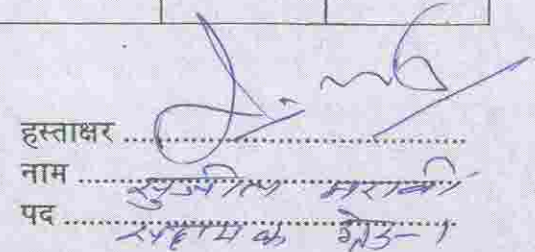 हस्ताक्षर ..........................
नाम ..... सुप्रीत्य मरावी
पद ..... सहायक ग्रेड-1